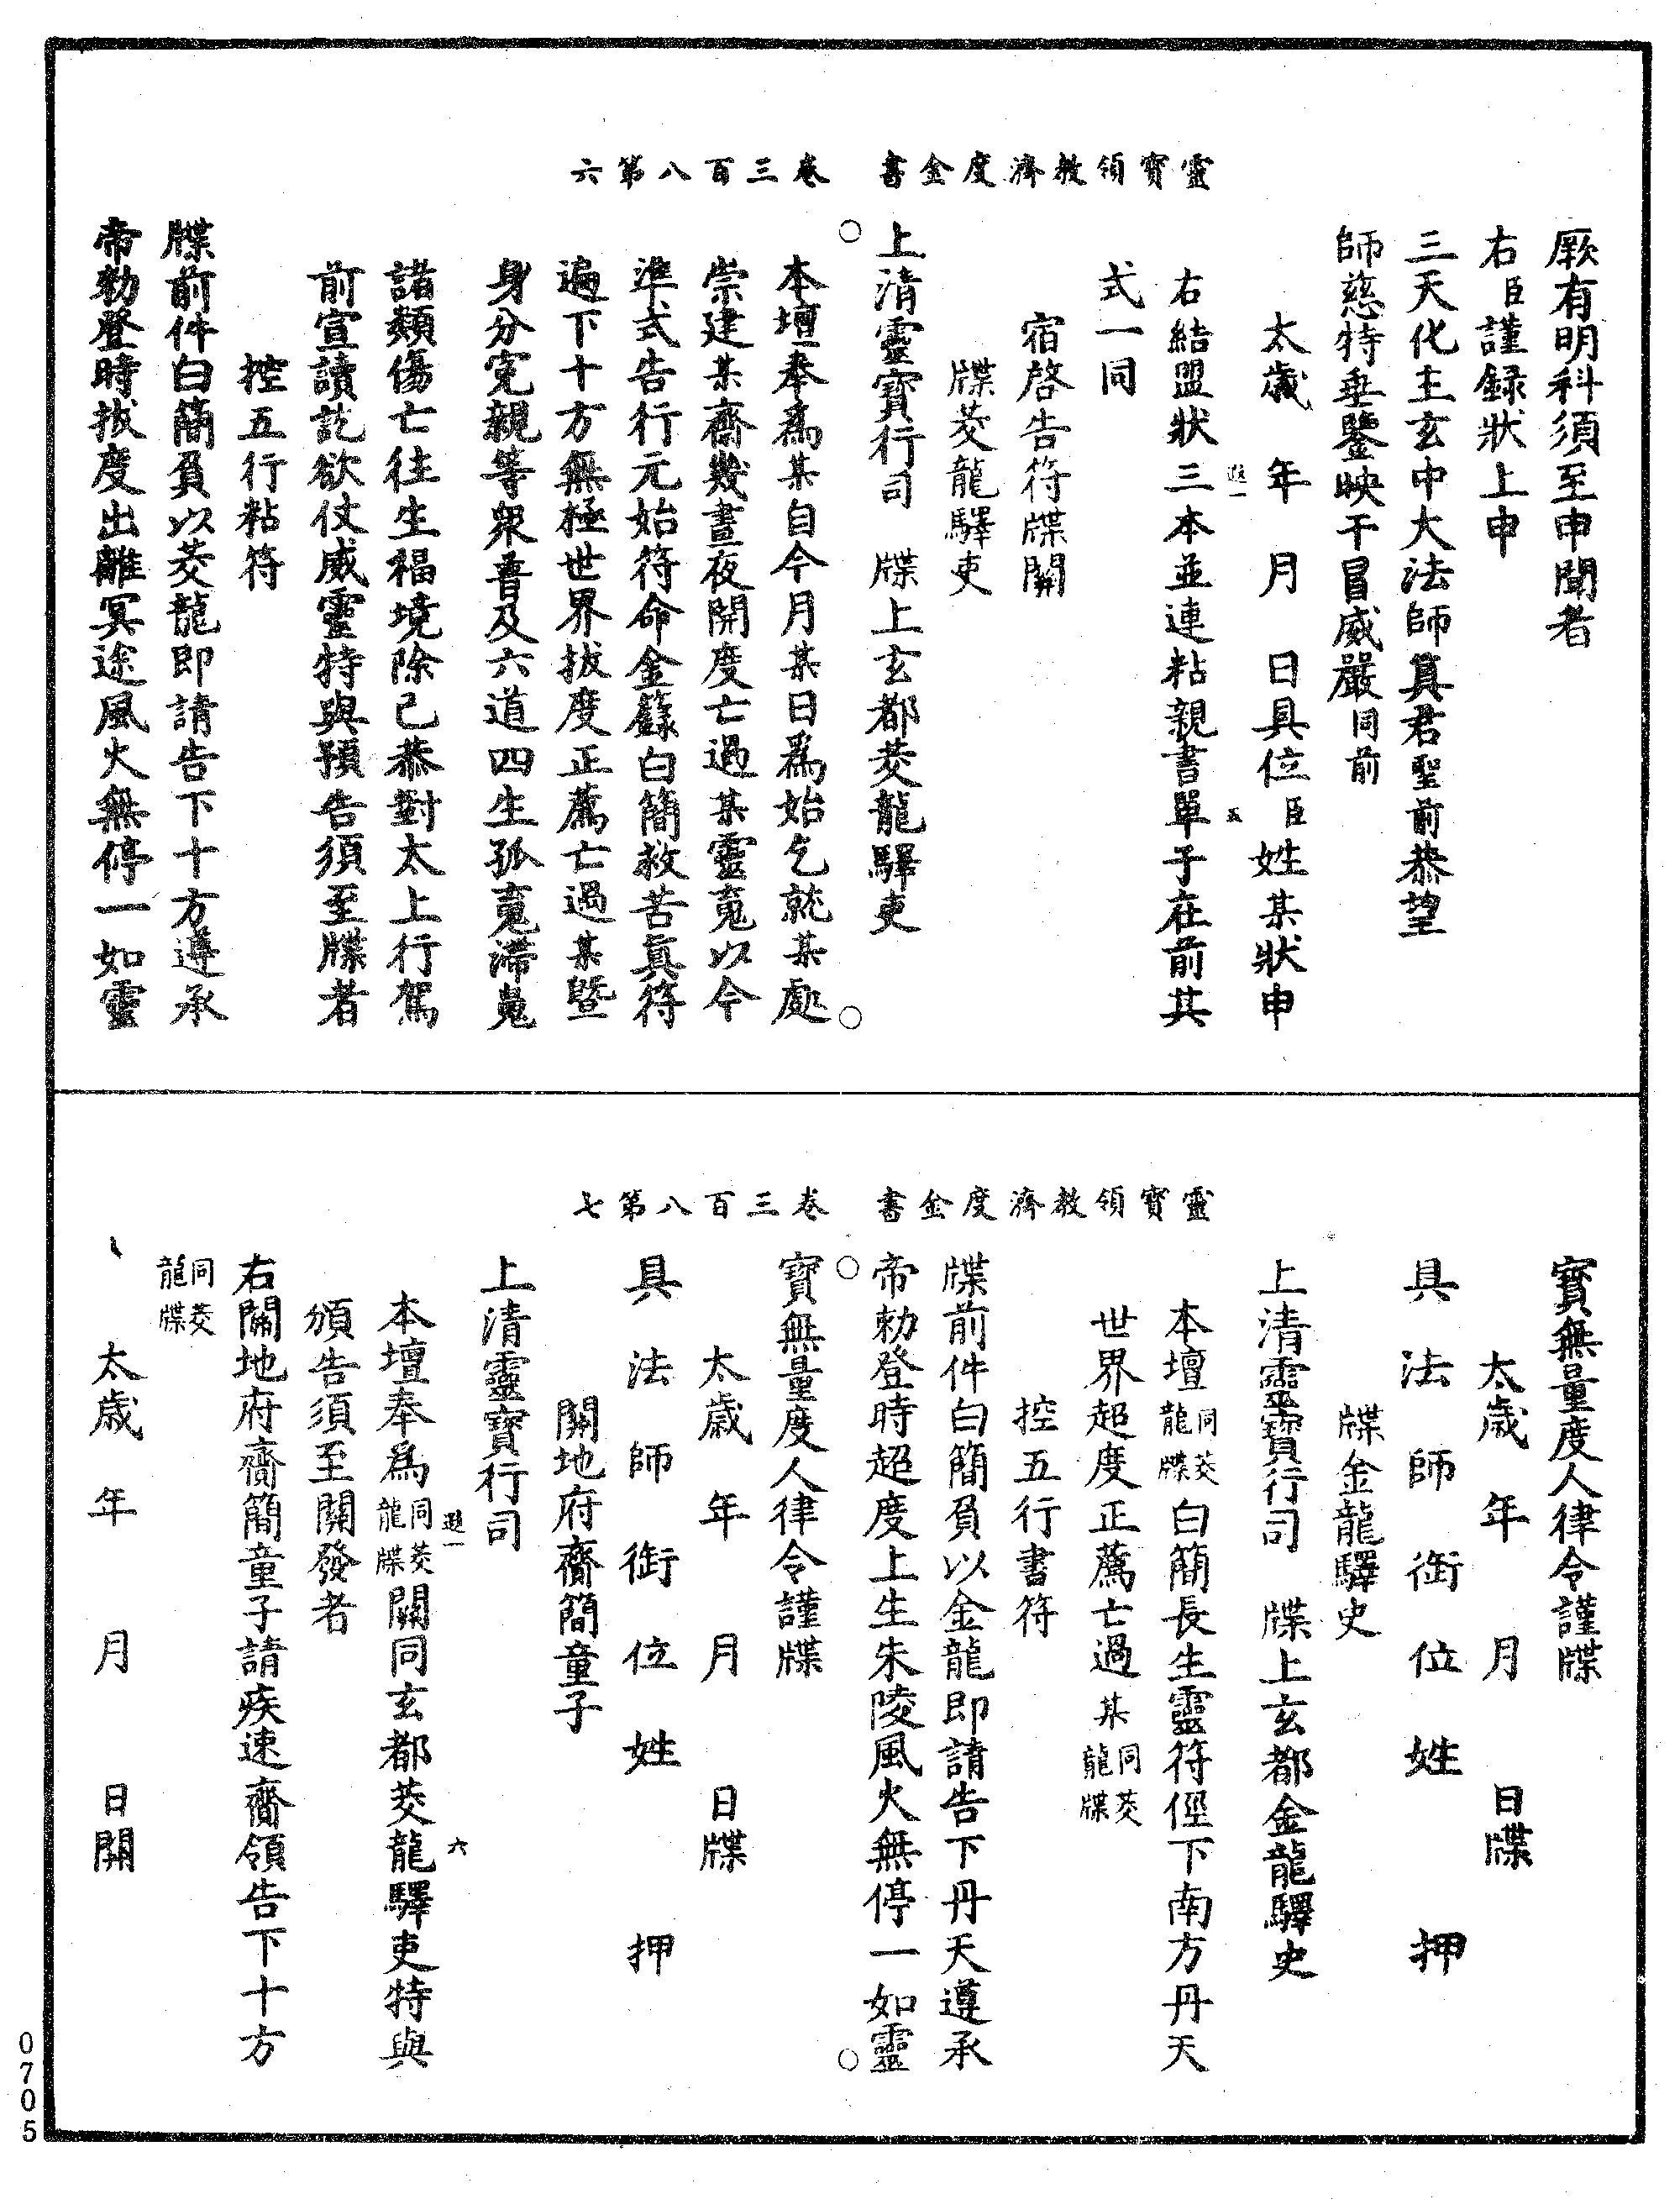 靈寶領教濟度金書　卷三百八第六
厥有明科須至申聞者
右臣謹録狀上申
三天化主玄中大法師真君聖前恭望
師慈特垂鑒映干冒威嚴同前
太歲　年　月　日具位臣姓某狀申
右結盟狀三本並連粘親書單子在前其
遐一　五
式一同
宿啓告符牒關
牒茭龍驛吏
上清靈寶行司　牒上玄都茭龍驛吏
本壇奉爲某自今月某日爲始乞就某處
崇建某齋幾晝夜開度亡過某靈䰟以今
準式告行元始符命金籙白簡救苦真符
遍下十方無極世界拔度正薦亡過某曁
身分寃親等衆普及六道四生孤䰟滯魄
諸類傷亡往生福境除已恭對太上行駕
前宣讀訖欲仗威靈特與預告須至牒者
控五行粘符
牒前件白簡負以茭龍即請告下十方遵承
帝勑登時拔度出離冥途風火無停一如靈
靈寶領教濟度金書　卷三百八第七
寶無量度人律令謹牒
太歲　年　月　日牒
具　法　師　銜　位　姓　押
牒金龍驛史
上清靈寶行司　牒上玄都金龍驛史
本壇同茭龍牒白簡長生靈符徑下南方丹天
世界超度正薦亡過某同茭龍牒
控五行書符
牒前件白簡負以金龍即請告下丹天遵承
帝勑登時超度上生朱陵風火無停一如靈
寶無量度人律令謹牒
太歲　年　月　日牒
具　法　師　銜　位　姓　押
關地府齎簡童子
上清靈寶行司
遐一　六
本壇奉爲同茭龍牒關同玄都茭龍驛吏特與
頒告須至關發者
右關地府齎簡童子請疾速齎領告下十方
同茭龍牒
太歲　年　月　日關
0705